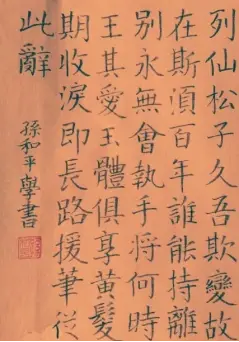 列仙松子久吾欺變故
在斯湏百年誰能持離
別永無會執手將何時
王其愛玉體俱享黃髮
期收淚即長路援筆從
此辭
孫和平學書